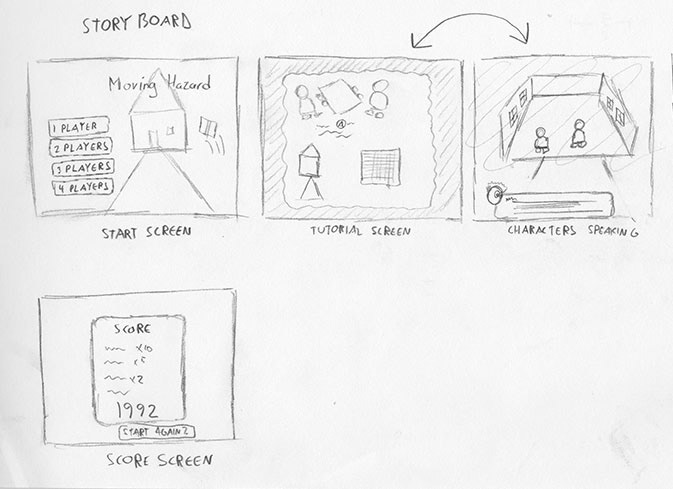 STORY BOARD
Moving Hazard
1 PLAYER
2 PLAYERS
3 PLAYERS
4 PLAYERS
START SCREEN
A
TUTORIAL SCREEN
CHARACTERS SPEAKING
SCORE
x10
x5
x2
1992
START AGAIN?
SCORE SCREEN